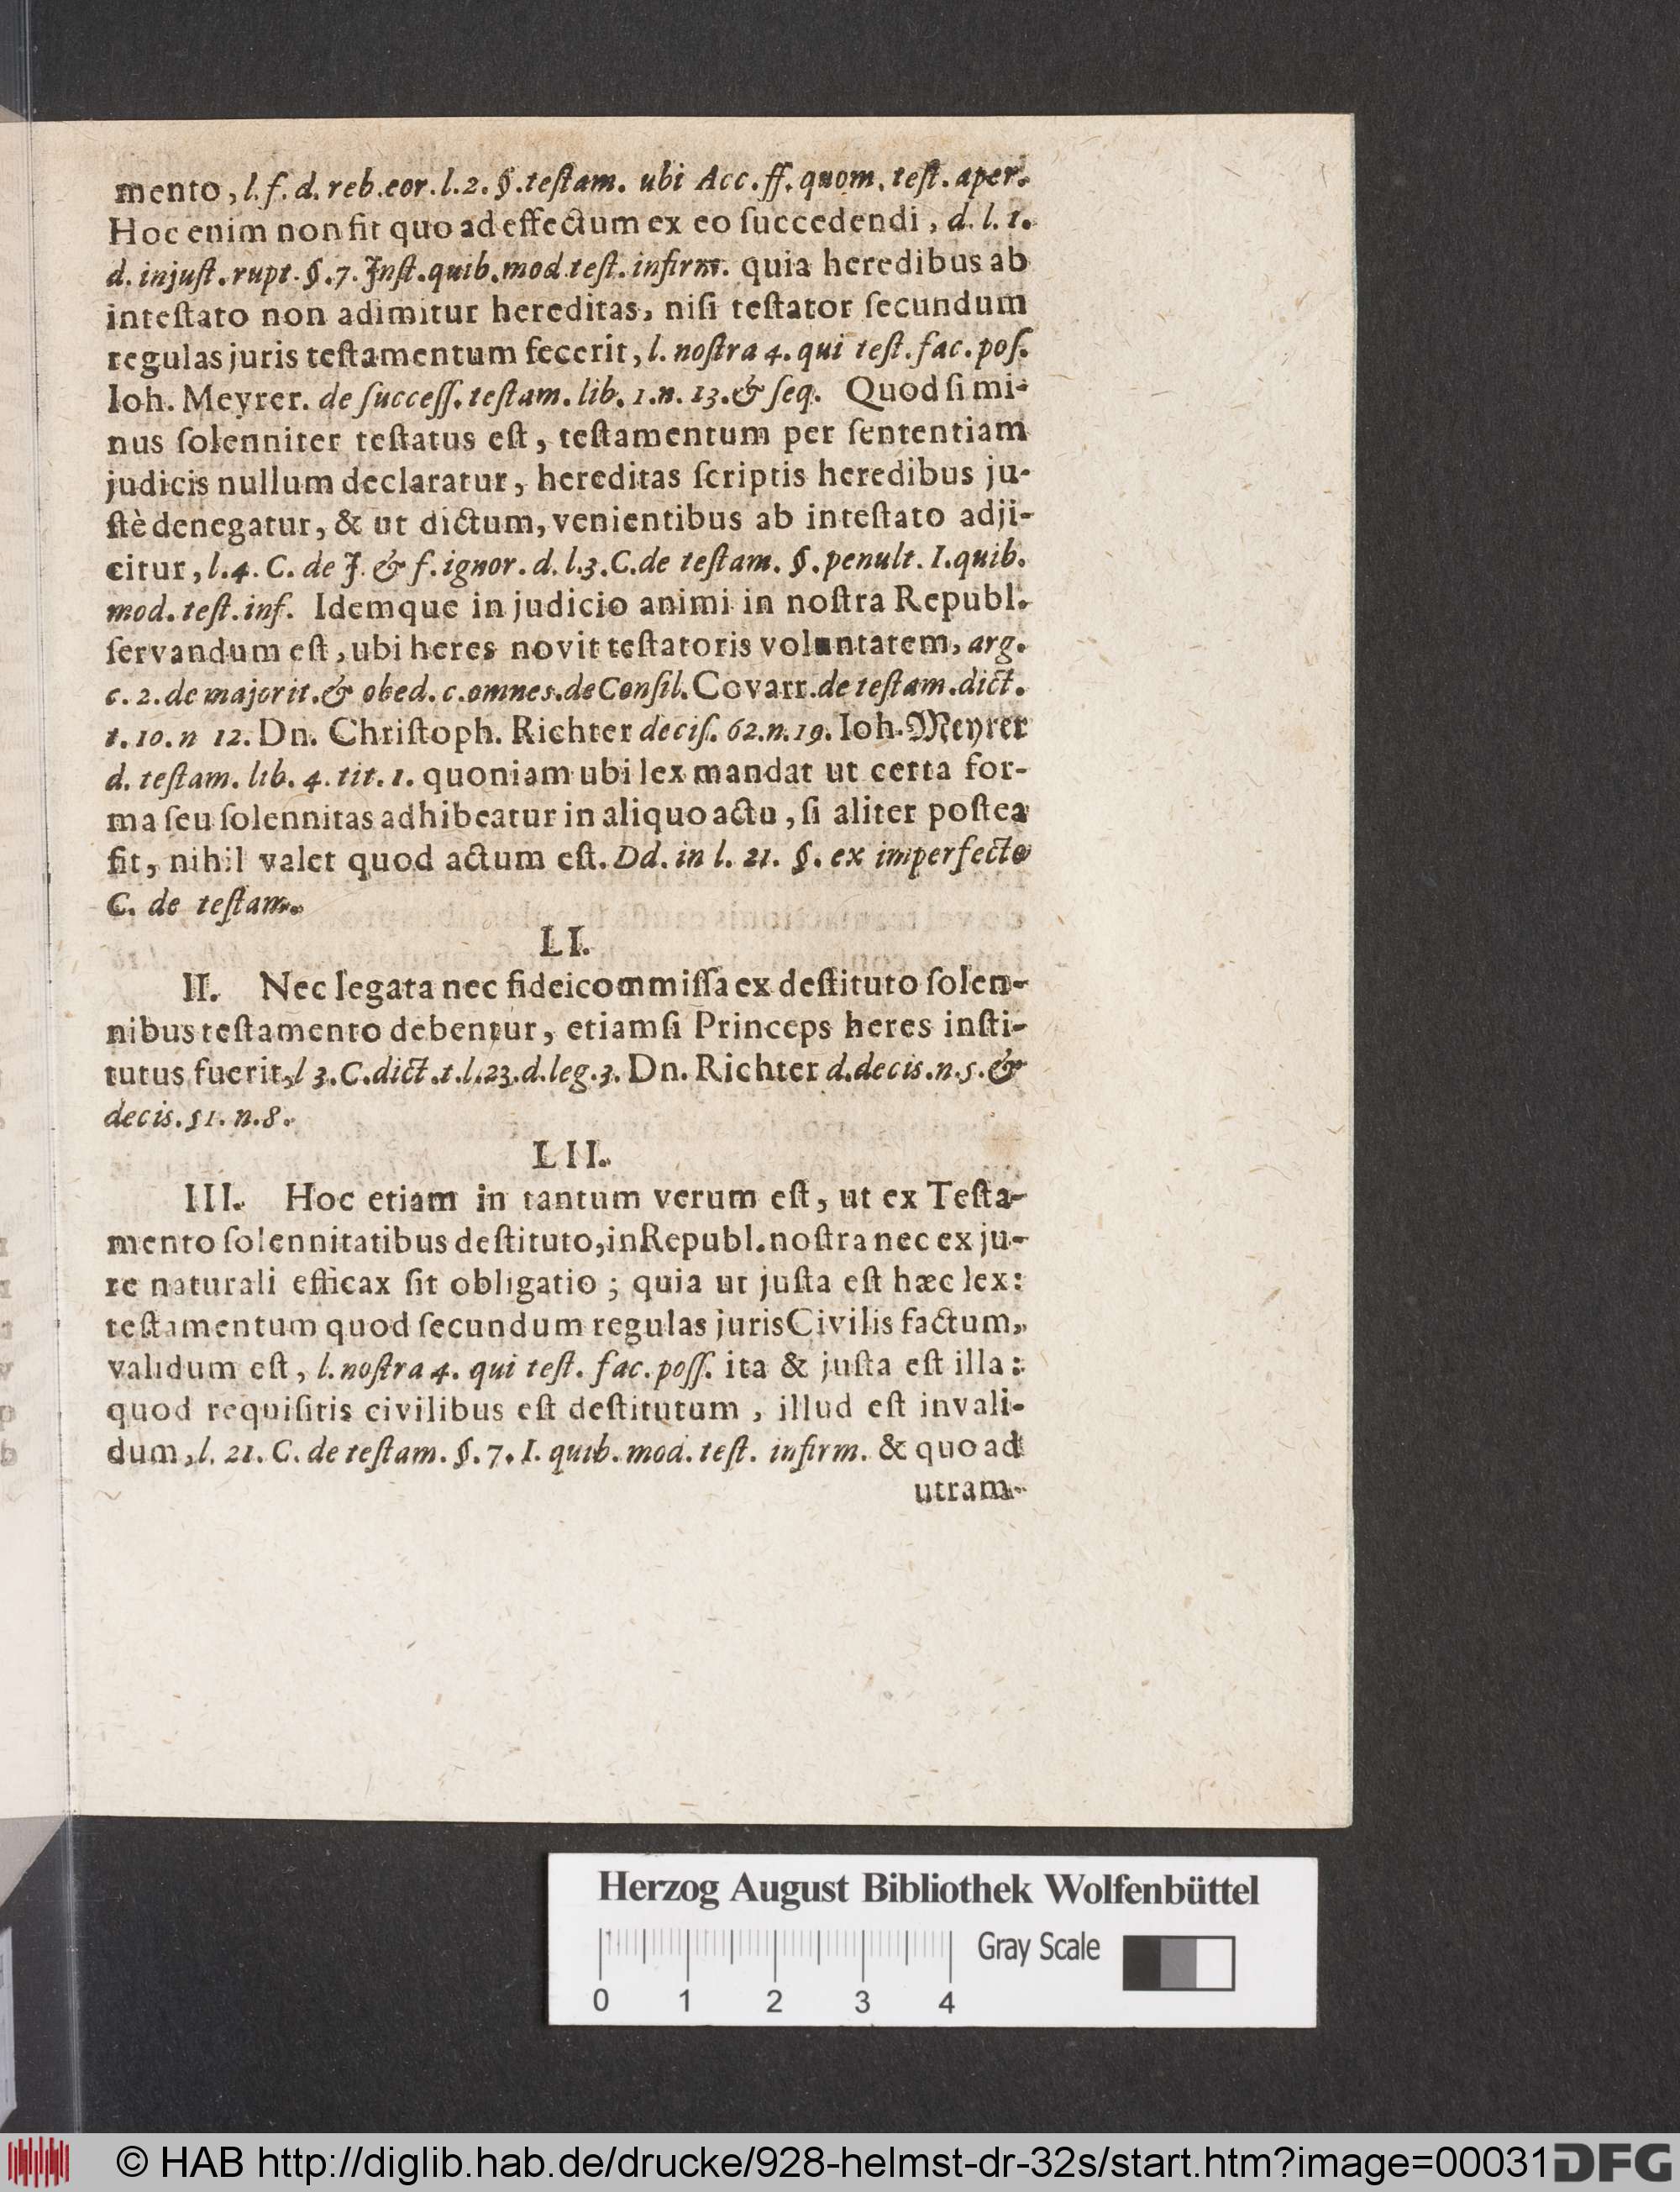 mento, l. f. d. reb. eor. l. 2. §. teſtam. ubi Acc. ff. quom. teſt. aper.
Hoc enim non fit quo ad effectum ex eo ſuccedendi, d. l. 1.
d. injuſt. rupt. §. 7. Jnſt. quib. mod. teſt. infirm. quia heredibus ab
inteſtato non adimitur hereditas, niſi teſtator ſecundum
regulas juris teſtamentum fecerit, l. noſtra 4. qui teſt. fac. poſ.
Ioh. Meyrer. de ſucceſſ. teſtam. lib. 1. n. 13. & ſeq. Quod ſi mi-
nus ſolenniter teſtatus eſt, teſtamentum per ſententiam
judicis nullum declaratur, hereditas ſcriptis heredibus ju-
ſtè denegatur, & ut dictum, venientibus ab inteſtato adji-
citur, l. 4. C. de J. & f. ignor. d. l. 3. C. de teſtam. §. penult. I. quib.
mod. teſt. inf. Idemque in judicio animi in noſtra Republ.
ſervandum eſt, ubi heres novit teſtatoris voluntatem, arg.
c. 2. de majorit. & obed. c. omnes. de Conſil. Covarr. de teſtam. dict.
t. 10. n 12. Dn. Chriſtoph. Richter deciſ. 62. n. 19. Ioh. Meyrer
d. teſtam. lib. 4. tit. 1. quoniam ubi lex mandat ut certa for-
ma ſeu ſolennitas adhibeatur in aliquo actu, ſi aliter poſtea
fit, nihil valet quod actum eſt. Dd. in l. 21. §. ex imperfecto
C. de teſtam.
LI.
II. Nec legata nec fideicommiſſa ex deſtituto ſolen-
nibus teſtamento debentur, etiamſi Princeps heres inſti-
tutus fuerit, l 3. C. dict. t. l. 23. d. leg. 3. Dn. Richter d. decis. n. 5. &
decis. 51. n. 8.
LII.
III. Hoc etiam in tantum verum eſt, ut ex Teſta-
mento ſolennitatibus deſtituto, in Republ. noſtra nec ex ju-
re naturali efficax ſit obligatio; quia ut juſta eſt hæc lex:
teſtamentum quod ſecundum regulas juris Civilis factum,
validum eſt, l. noſtra 4. qui teſt. fac. poſſ. ita & juſta eſt illa:
quod requiſitis civilibus eſt deſtitutum, illud eſt invali-
dum, l. 21. C. de teſtam. §. 7. I. quib. mod. teſt. infirm. & quo ad
utram-
Herzog August Bibliothek Wolfenbüttel
Gray Scale
0 1 2 3 4
© HAB http://diglib.hab.de/drucke/928-helmst-dr-32s/start.htm?image=00031 DFG